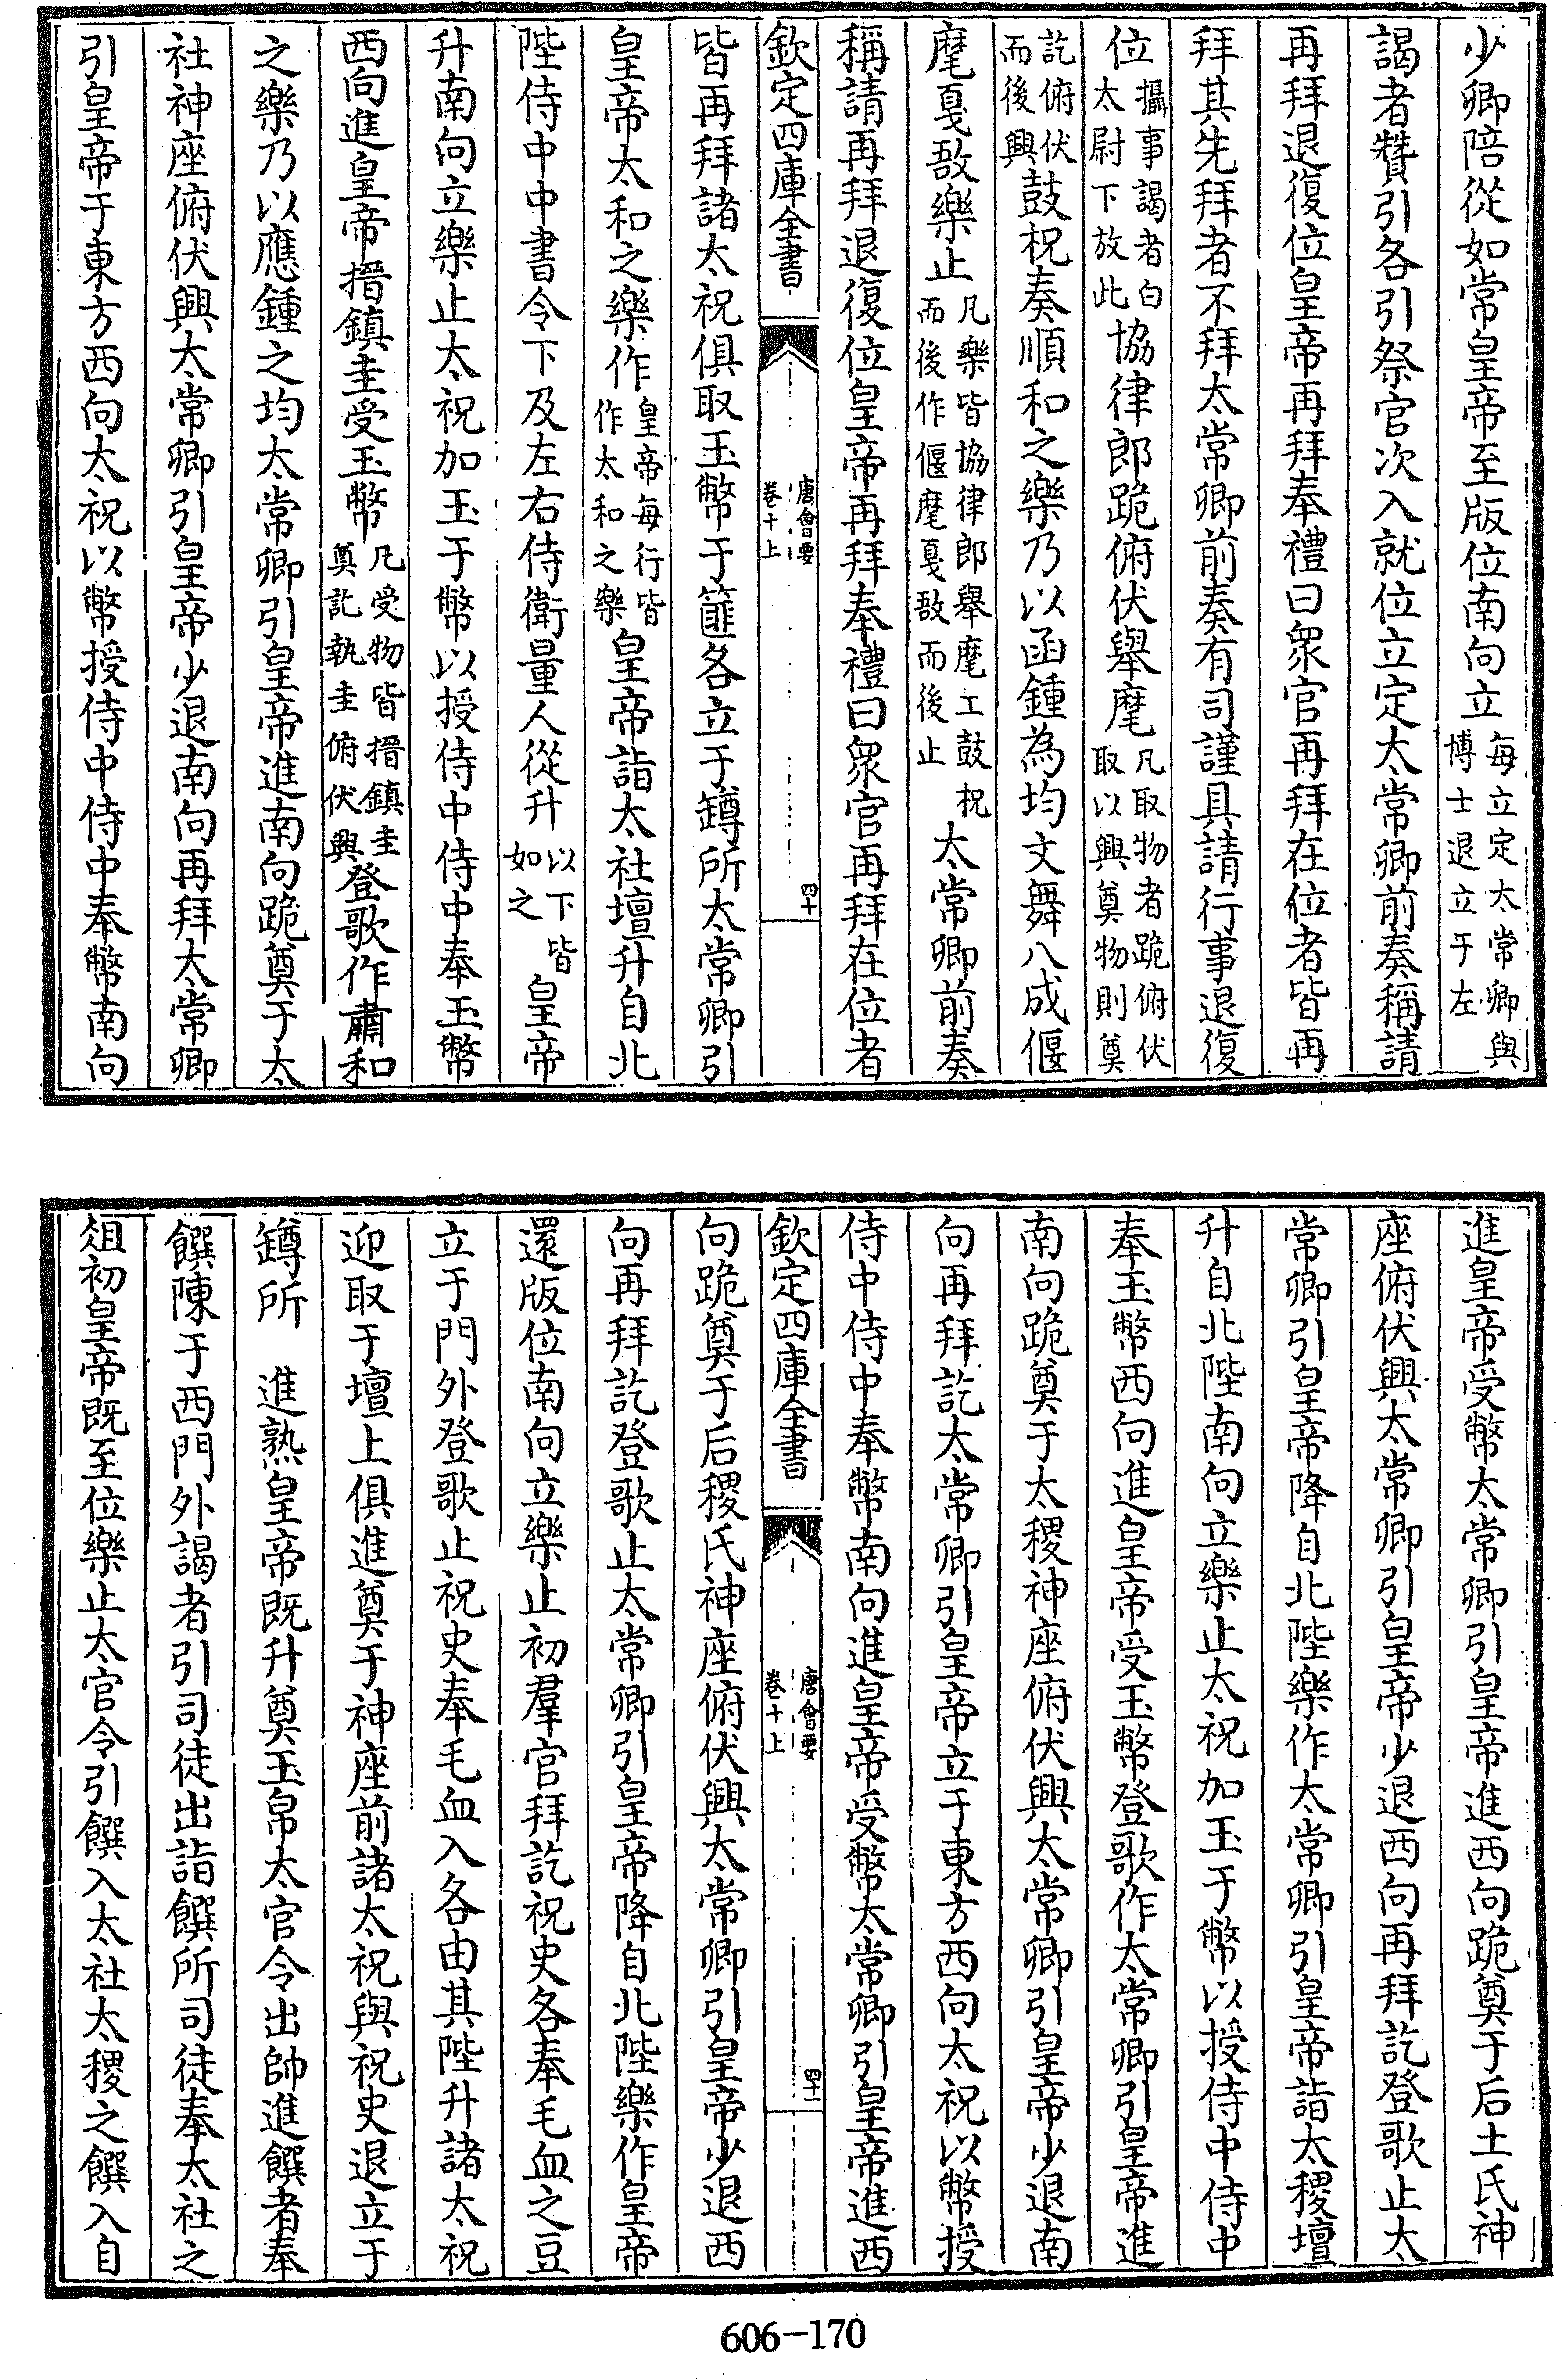 少卿陪從如常皇帝至版位南向立每立定太常卿與博士退立于左
謁者贊引各引祭官次入就位立定太常卿前奏稱請
再拜退復位皇帝再拜奉禮曰衆官再拜在位者皆再
拜其先拜者不拜太常卿前奏有司謹具請行事退復
位攝事謁者白太尉下放此協律郎跪俯伏舉麾凡取物者跪俯伏取以興奠物則奠
訖俯伏而後興鼓柷奏順和之樂乃以函鍾為均文舞八成偃
麾戛敔樂止凡樂皆協律郎舉麾工鼓柷而後作偃麾戛敔而後止太常卿前奏
稱請再拜退復位皇帝再拜奉禮曰衆官再拜在位者
欽定四庫全書 唐會要 卷十上 四十
皆再拜諸太祝俱取玉幣于篚各立于罇所太常卿引
皇帝太和之樂作皇帝每行皆作太和之樂皇帝詣太社壇升自北
陛侍中中書令下及左右侍衛量人從升以下皆如之皇帝
升南向立樂止太祝加玉于幣以授侍中侍中奉玉幣
西向進皇帝搢鎮圭受玉幣凡受物皆搢鎮圭奠訖執圭俯伏興登歌作肅和
之樂乃以應鍾之均太常卿引皇帝進南向跪奠于太
社神座俯伏興太常卿引皇帝少退南向再拜太常卿
引皇帝于東方西向太祝以幣授侍中侍中奉幣南向
進皇帝受幣太常卿引皇帝進西向跪奠于后土氏神
座俯伏興太常卿引皇帝少退西向再拜訖登歌止太
常卿引皇帝降自北陛樂作太常卿引皇帝詣太稷壇
升自北陛南向立樂止太祝加玉于幣以授侍中侍中
奉玉幣西向進皇帝受玉幣登歌作太常卿引皇帝進
南向跪奠于太稷神座俯伏興太常卿引皇帝少退南
向再拜訖太常卿引皇帝立于東方西向太祝以幣授
侍中侍中奉幣南向進皇帝受幣太常卿引皇帝進西
欽定四庫全書 唐會要 卷十上 四十一
向跪奠于后稷氏神座俯伏興太常卿引皇帝少退西
向再拜訖登歌止太常卿引皇帝降自北陛樂作皇帝
還版位南向立樂止初羣官拜訖祝史各奉毛血之豆
立于門外登歌止祝史奉毛血入各由其陛升諸太祝
迎取于壇上俱進奠于神座前諸太祝與祝史退立于
罇所 進熟皇帝既升奠玉帛太官令出帥進饌者奉
饌陳于西門外謁者引司徒出詣饌所司徒奉太社之
俎初皇帝既至位樂止太官令引饌入太社太稷之饌入自
606-170